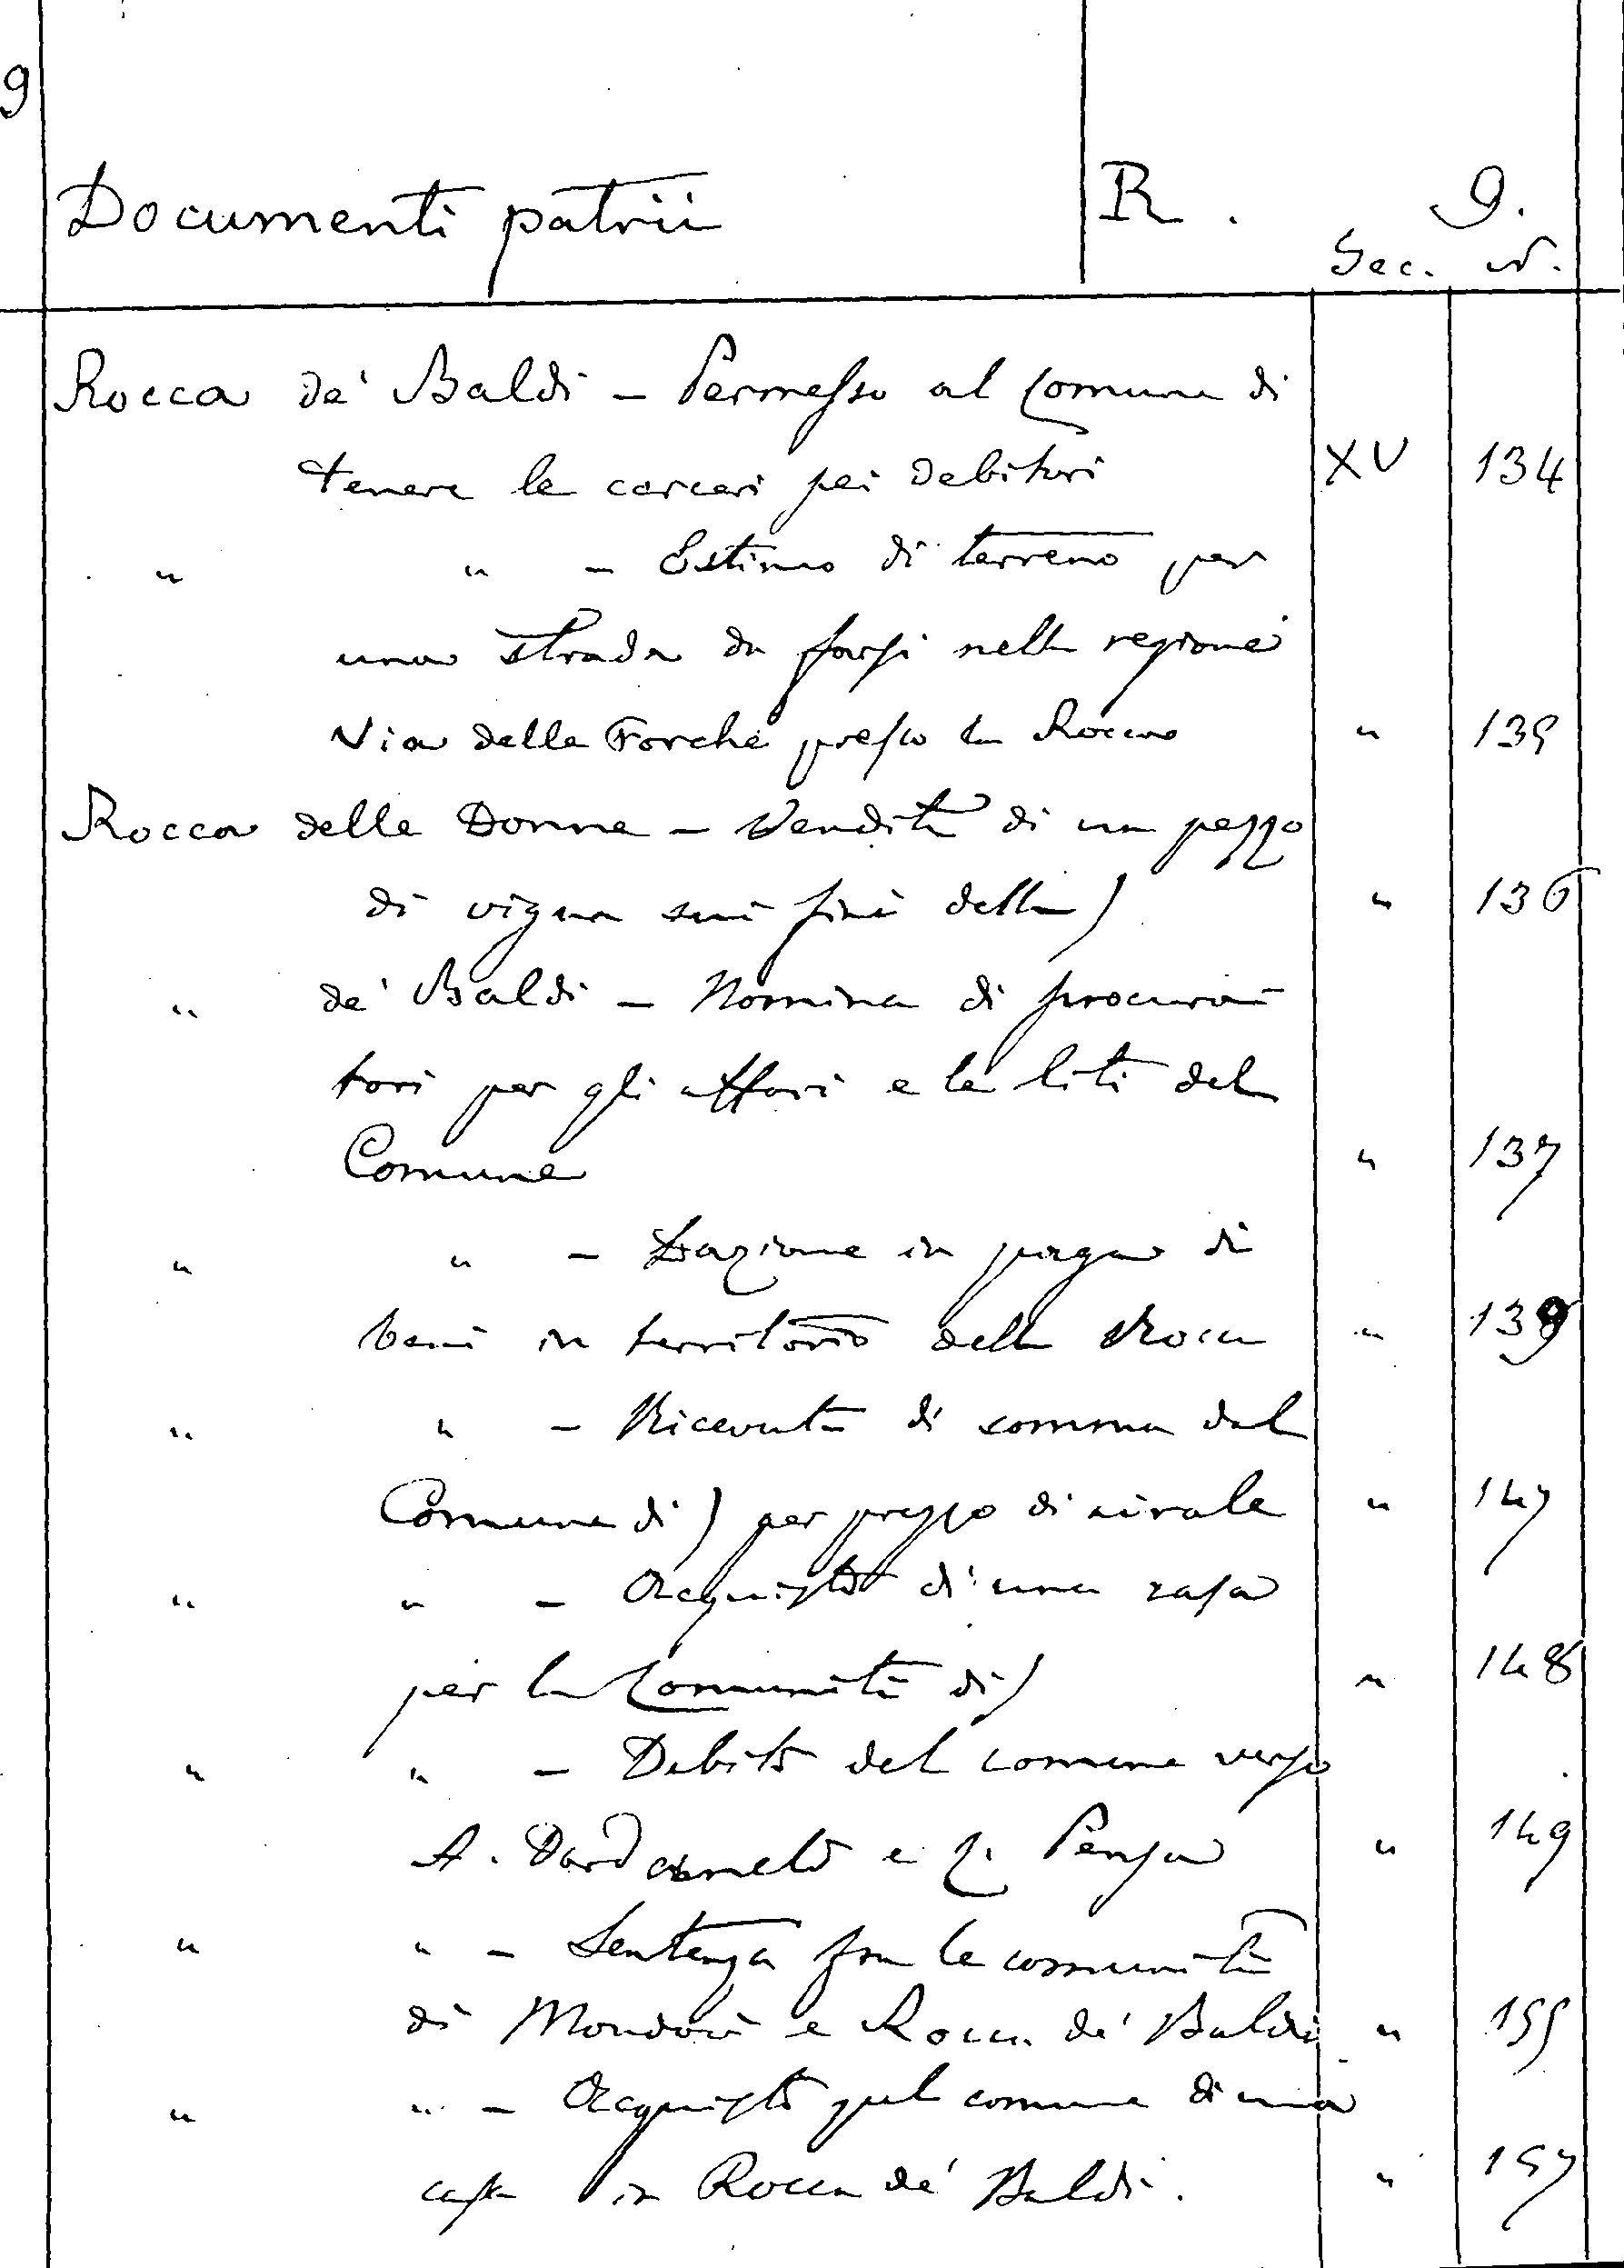 9
Documenti patrii R. 9.
Sec. N.
Rocca de' Baldi - Permesso al Comune di
tenere le carceri pei debitori XV 134
" " - Estimo di terreno per
una strada da farsi nella regione
Via delle Forche presso la Rocca " 135
Rocca delle Donne - Vendita di un pezzo
di vigna sui fini della) " 136
" de' Baldi - Nomina di procura=
tori per gli affari e le liti del
Comune " 137
" " - Dazione in paga di
beni in territorio della Rocca " 139
" " - Ricevuta di somma dal
Comune di) per prezzo di " 147
" " - Acquisto di una casa
per la Comunità di) " 148
" " - Debito del comune verso
A. Dardanelo e Pensa " 149
" " - Sentenza fra le comunità
di Mondovì e Rocca de' Baldi " 155
" " - Acquisto pel comune di una
casa in Rocca de' Baldi. " 157